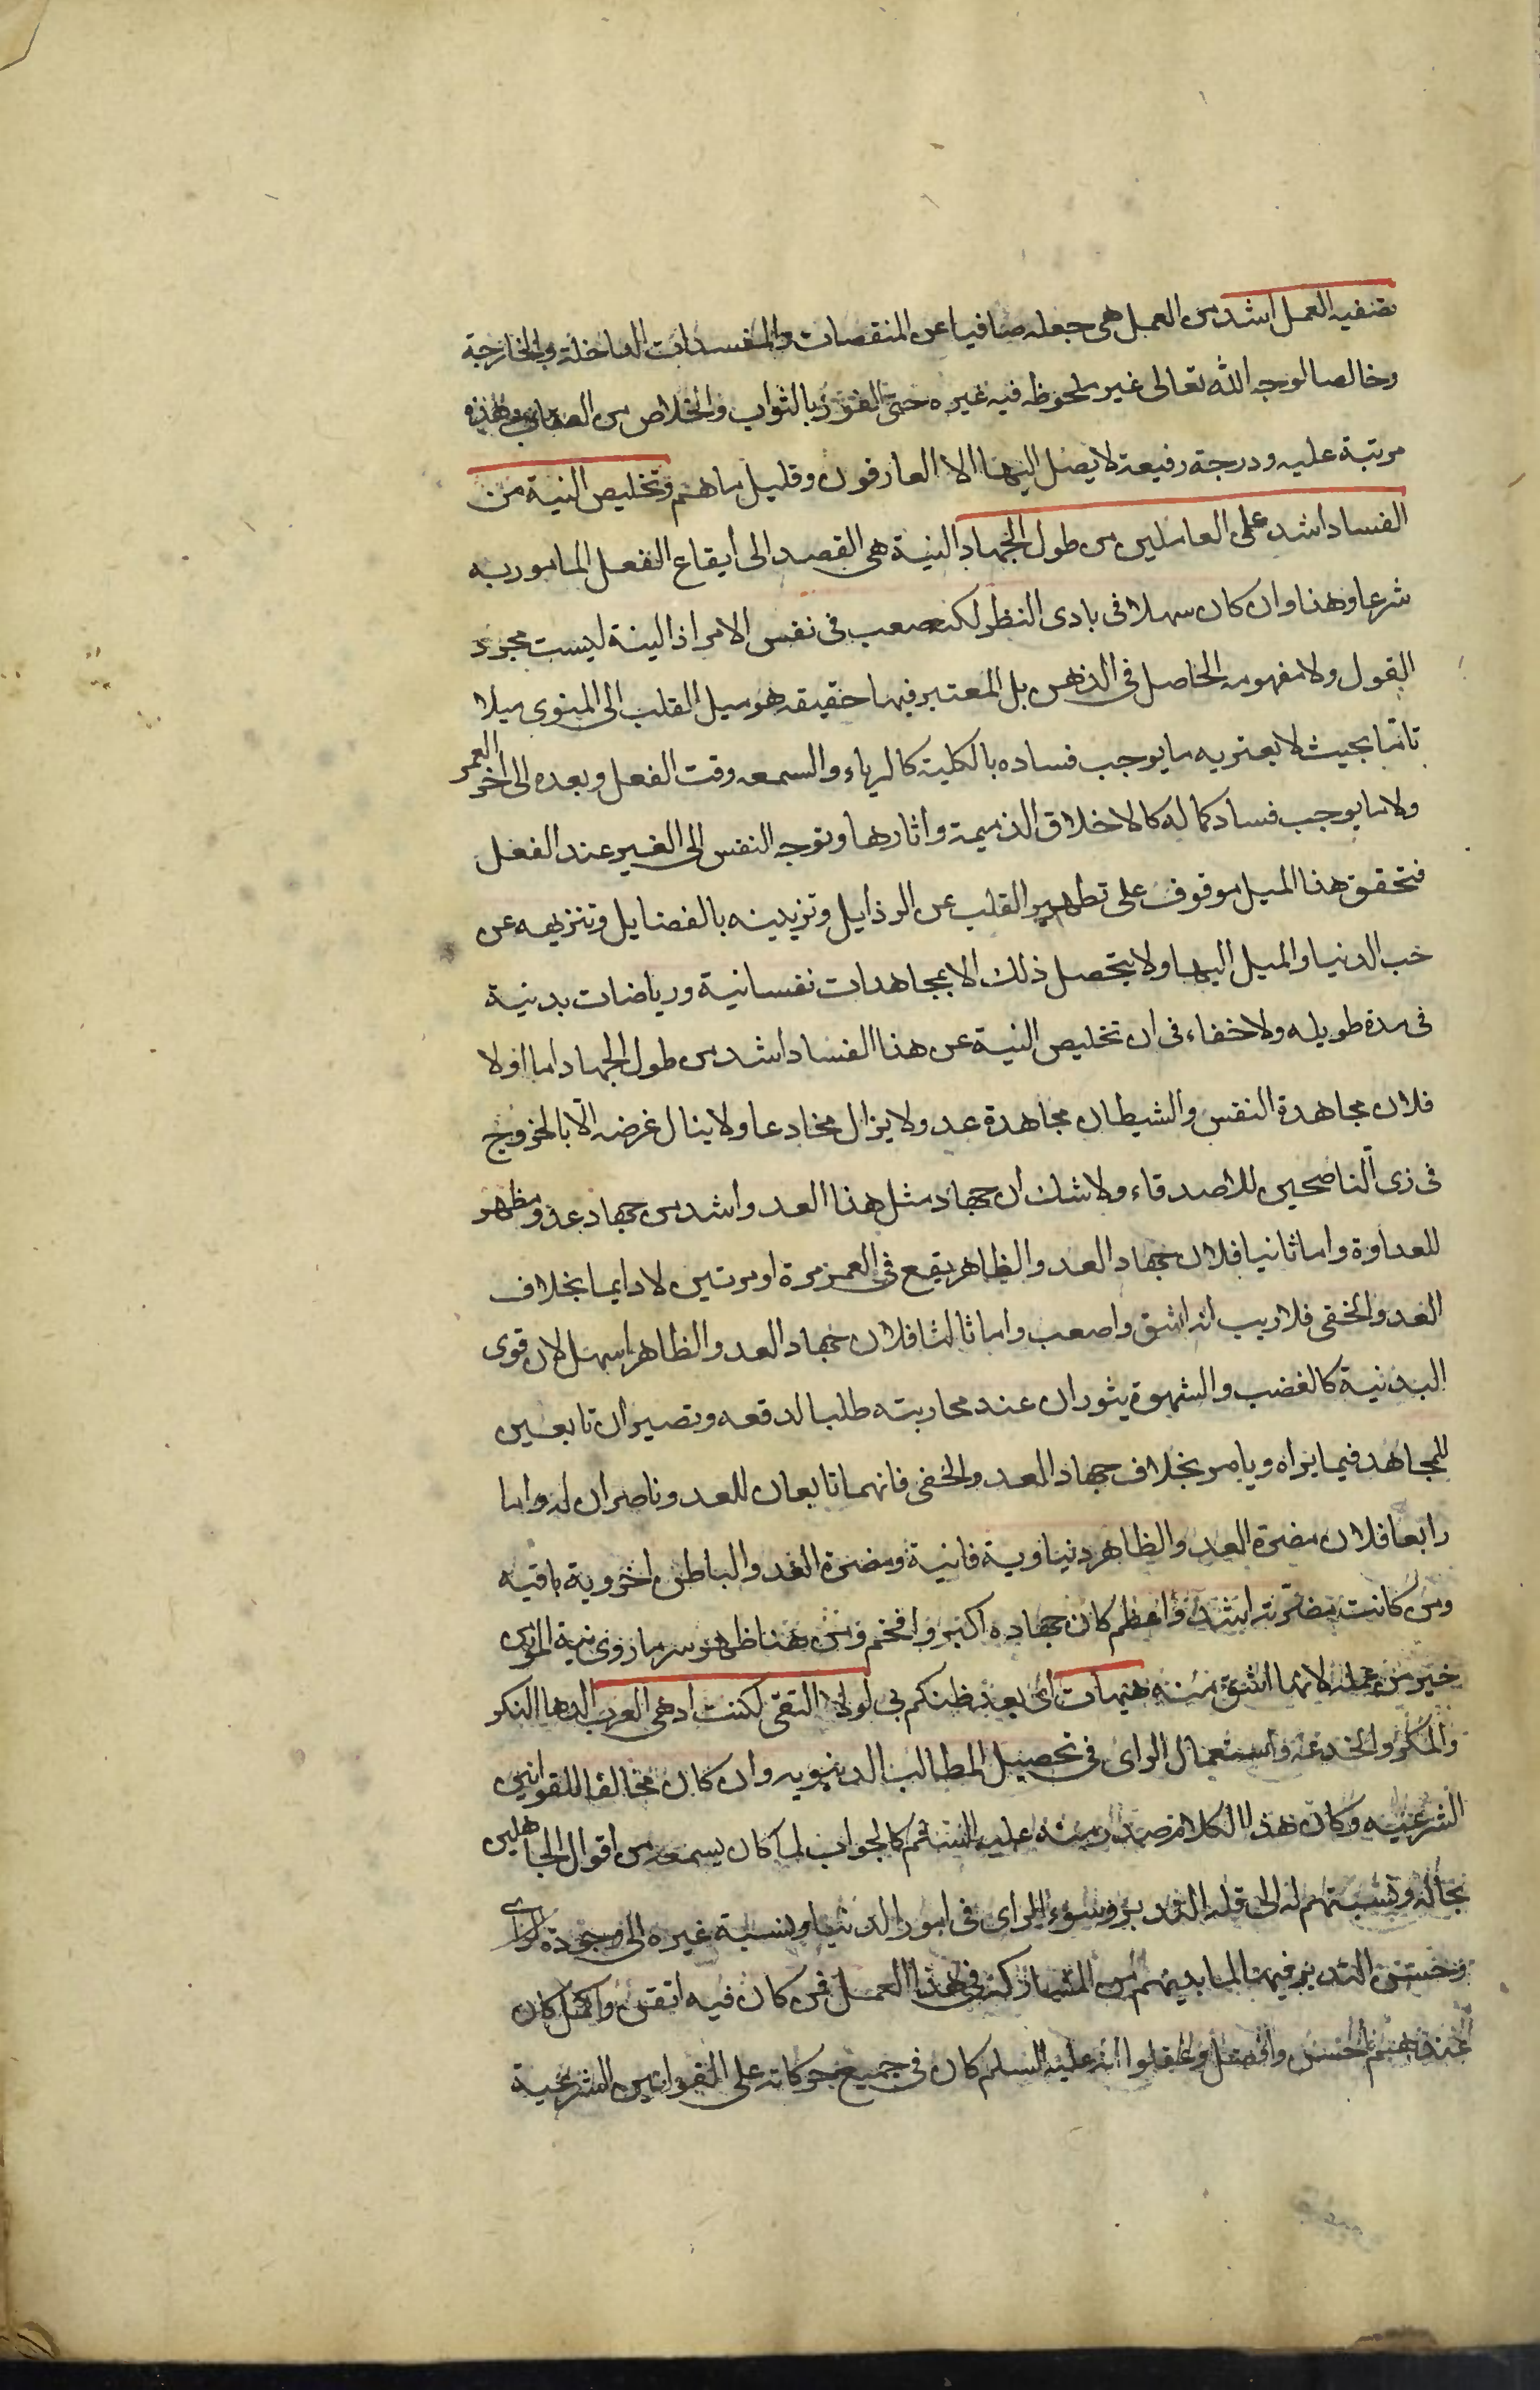 تصفيه العمل اشد من العمل هى جعله صافيا عن المنقصات والمفسدات الداخلة والخارجة
وخالصا لوجه الله تعالى غير ملحوظ فيه غيره حتى الفوز بالثواب والخلاص من العقاب وهذه
مرتبة عليه ودرجة رفيعة لا يصل اليها الا العارفون وقليل ما هم وتخليص النية من
الفساد اشد على العاملين من طول الجهاد النية هى القصد الى ايقاع الفعل المامور به
شرعا وهذا وان كان سهلا فى بادى النظر لكنه صعب فى نفس الامر اذ النية ليست مجرد
القول ولا مفهومه الحاصل فى الذهن بل المعتبر فيها حقيقه هو ميل القلب الى المنوى ميلا
تاما بحيث لا يعتريه ما يوجب فساده بالكلية كالرياء والسمعه وقت الفعل وبعده الى اخر العمر
ولا ما يوجب فساد كماله كالاخلاق الذميمة واثارها وتوجه النفس الى الغير عند الفعل
فتحقق هذا الميل موقوف على تطهير القلب عن الرذايل وتزيينه بالفضايل وتنزيهه عن
حب الدنيا والميل اليها ولا يتحصل ذلك الا بمجاهدات نفسانية ورياضات بدنية
فى مدة طويله ولا خفاء فى ان تخليص النية عن هذا الفساد اشد من طول الجهاد اما اولا
فلان مجاهدة النفس والشيطان مجاهدة عدو لا يزال مخادعا ولا ينال غرضه الا بالخروج
فى زى الناصحين للاصدقاء ولا شك ان جهاد مثل هذا العدو اشد من جهاد عدو مظهر
للعداوة واما ثانيا فلان جهاد العدو الظاهر يقع فى العمر مرة او مرتين لا دايما بخلاف
العدو الخفى فلا ريب انه اشق واصعب واما ثالثا فلان جهاد العدو الظاهر اسهل لان قوى
البدنية كالغضب والشهوة يثوران عند محاربته طلبا لدفعه وتصيران تابعين
للمجاهد فيما يراه ويامر بخلاف جهاد العدو الخفى فانهما تابعان للعدو وناصران له واما
رابعا فلان مضرة العدو الظاهر دنياوية فانية ومضرة العدو الباطن اخروية باقيه
ومن كانت مضرته اشد واعظم كان جهاده اكبر وافخم ومن هنا ظهر سر ما روى نية المؤمن
خير من عمله لانها اشق منه هيهات اى بعد ظنكم بى لولا التقى لكنت ادهى العرب الدها النكر
والمكر والخدعه واستعمال الراى فى تحصيل المطالب الدنيويه وان كان مخالفا للقوانين
الشرعيه وكان هذا الكلام صدر منه عليه السلم كالجواب لما كان يسمعه من اقوال الجاهلين
بحاله ونسبتهم له الى قله التدبير وسوء الراى فى امور الدنيا ونسبة غيره الى جودة الراى
وحسن التدبير فيها لما بينهم من المشاركة فى هذا العمل فمن كان فيه اتقن واكمل كان
عندهم احسن وافضل وغفلوا انه عليه السلم كان فى جميع حركاته على القوانين الشرعية